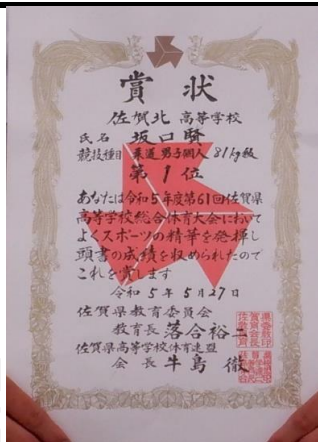 賞状
佐賀北 高等学校
氏名 坂口賢
競技種目 柔道男子個人 81kg級
第1位
あなたは令和5年度第61回佐賀県
高等学校総合体育大会において
よくスポーツの精華を発揮し
頭書の成績を収められたので
これを賞します
令和 5年 5月27日
佐賀県教育委員会
教育長 落合裕二
佐賀県高等学校体育連盟
会長 牛島 徹